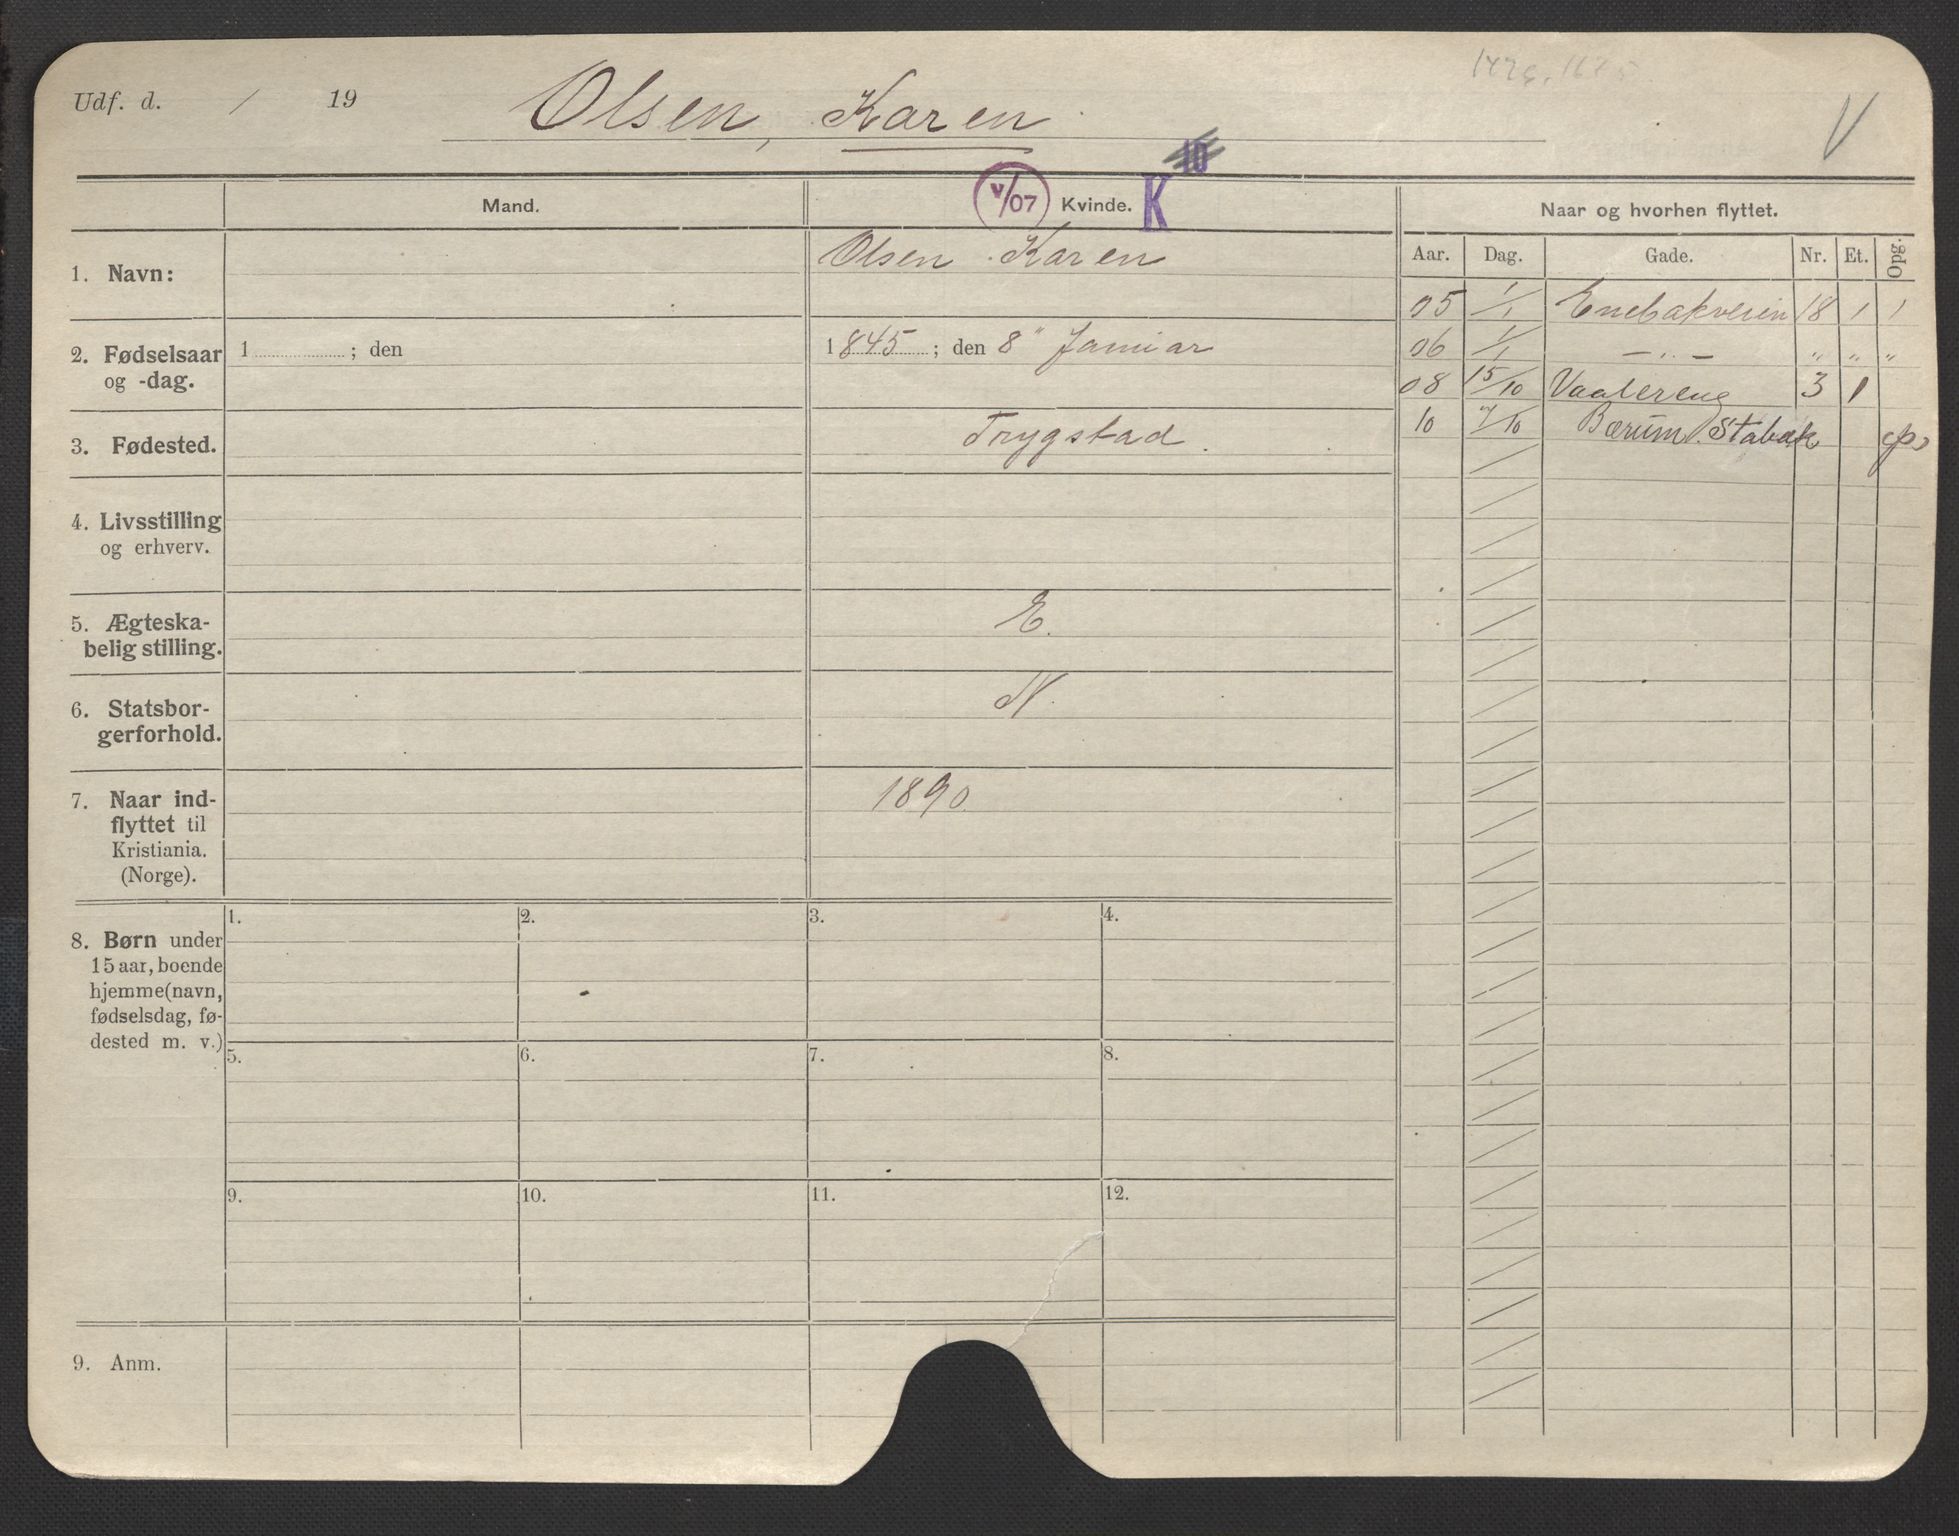 Udf. d. / 19
Olsen, Karen
V
Mand.
V/07 Kvinde. K 10
Naar og hvorhen flyttet.
Aar. Dag. Gade. Nr. Et. Opg.
1. Navn:
Olsen Karen
05 1/1 Enebakveien 18 1 1
2. Fødselsaar og -dag.
1 ; den
1845 ; den 8" Januar
06 1/1 — " — " " "
08 15/10 Vaalereng 3 1
3. Fødested.
Trygstad.
10 /10 Bærum. Stabæk
4. Livsstilling
og erhverv.
5. Ægteska-
belig stilling.
E.
6. Statsbor-
gerforhold.
N.
7. Naar ind-
flyttet til
Kristiania.
(Norge).
1890.
8. Børn under
15 aar, boende
hjemme (navn,
fødselsdag, fø-
dested m. v.)
1. 2. 3. 4.
5. 6. 7. 8.
9. 10. 11. 12.
9. Anm.